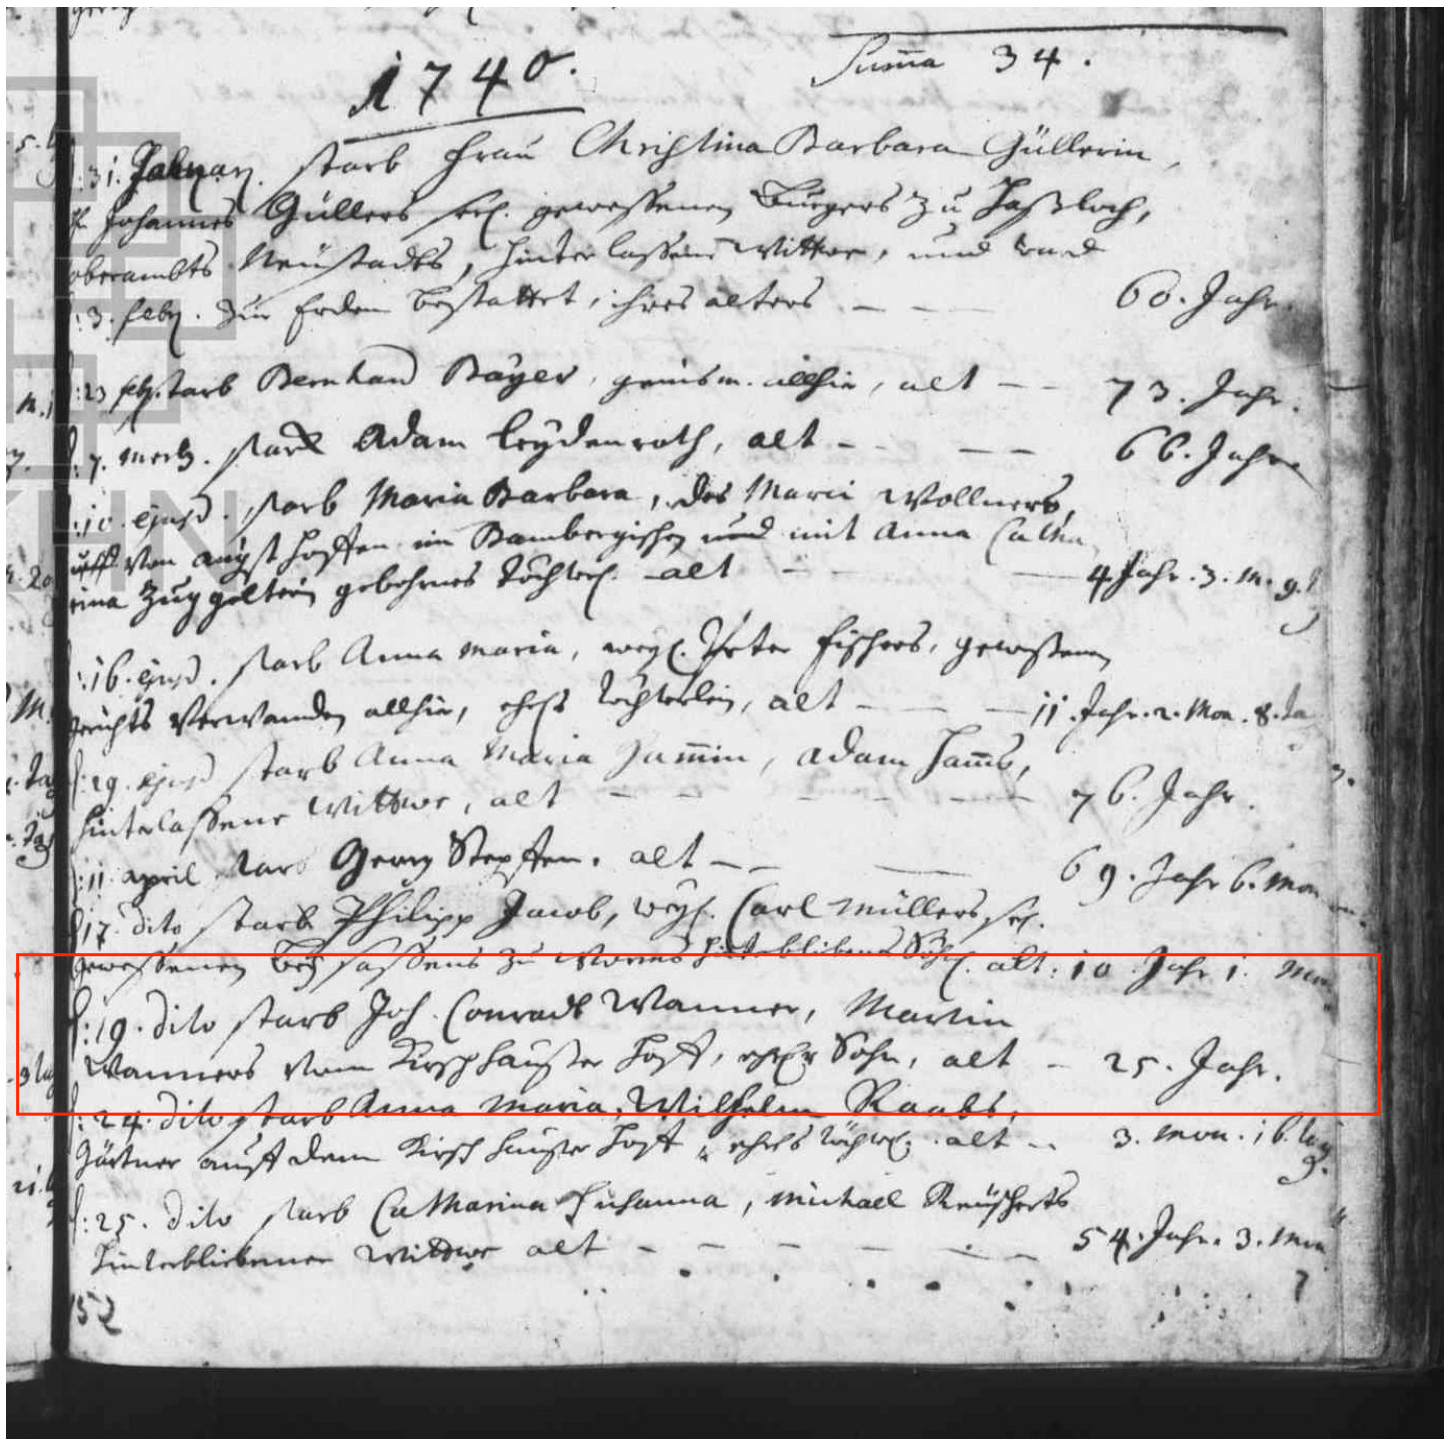 Summa 34.
1740.
31. Januar. starb Frau Christina Barbara Güllerin,
Johannes Güllers sel. gewessenen Burgers zu Haßloch,
oberambts Neustadts, hinterlassene Wittwe, und ward
3. feb. zur Erden bestattet, ihres alters — — 60. Jahr.
23 feb. starb Bernhard Bayer, gemeinsm. allhie, alt — — 73. Jahr.
7. Mertz. starb Adam Leydenroth, alt — — — 66. Jahr
10. ejusd. starb Maria Barbara, des Marci Wollners,
von im Bambergischen und mit Anna Catha
rina gebohrnes Töchterl. alt — — 4 Jahr. 3. M. 9.
16. ejusd. starb Anna Maria, weyl. Peter Fischers, gewessenen
gerichts Verwanden allhie, ehel. Töchterlein, alt — — — 11. Jahr. 2. Mon. 8. Ta
29. ejusd starb Anna Maria Hammin, Adam Hamms,
hinterlassene Wittwe, alt — — — — — 76. Jahr.
11 april starb Georg Stepffen. alt — — — 69. Jahr 6. Mon
17. dito starb Philipp Jacob, weyl. Carl Müllers sel.
gewessenen Beysassens zu Worms hinterbliebenes Söhnl. alt: 10. Jahr 1. Mon
19. dito starb Joh. Conradt Wanner, Martin
Wanners vom Kirschhaußer Hoff, ehel. Sohn, alt — 25. Jahr.
24. dito starb Anna Maria, Wilhelm Raabs,
Gärtner auff dem Kirschhaußer Hoff, ehel. Töchterl. alt — 3. Mon. 16. tag
25. dito starb Catharina Susanna, Michael Reuscherts
hinterbliebene Wittwe alt — — — — — 54. Jahr. 3. Mon
152